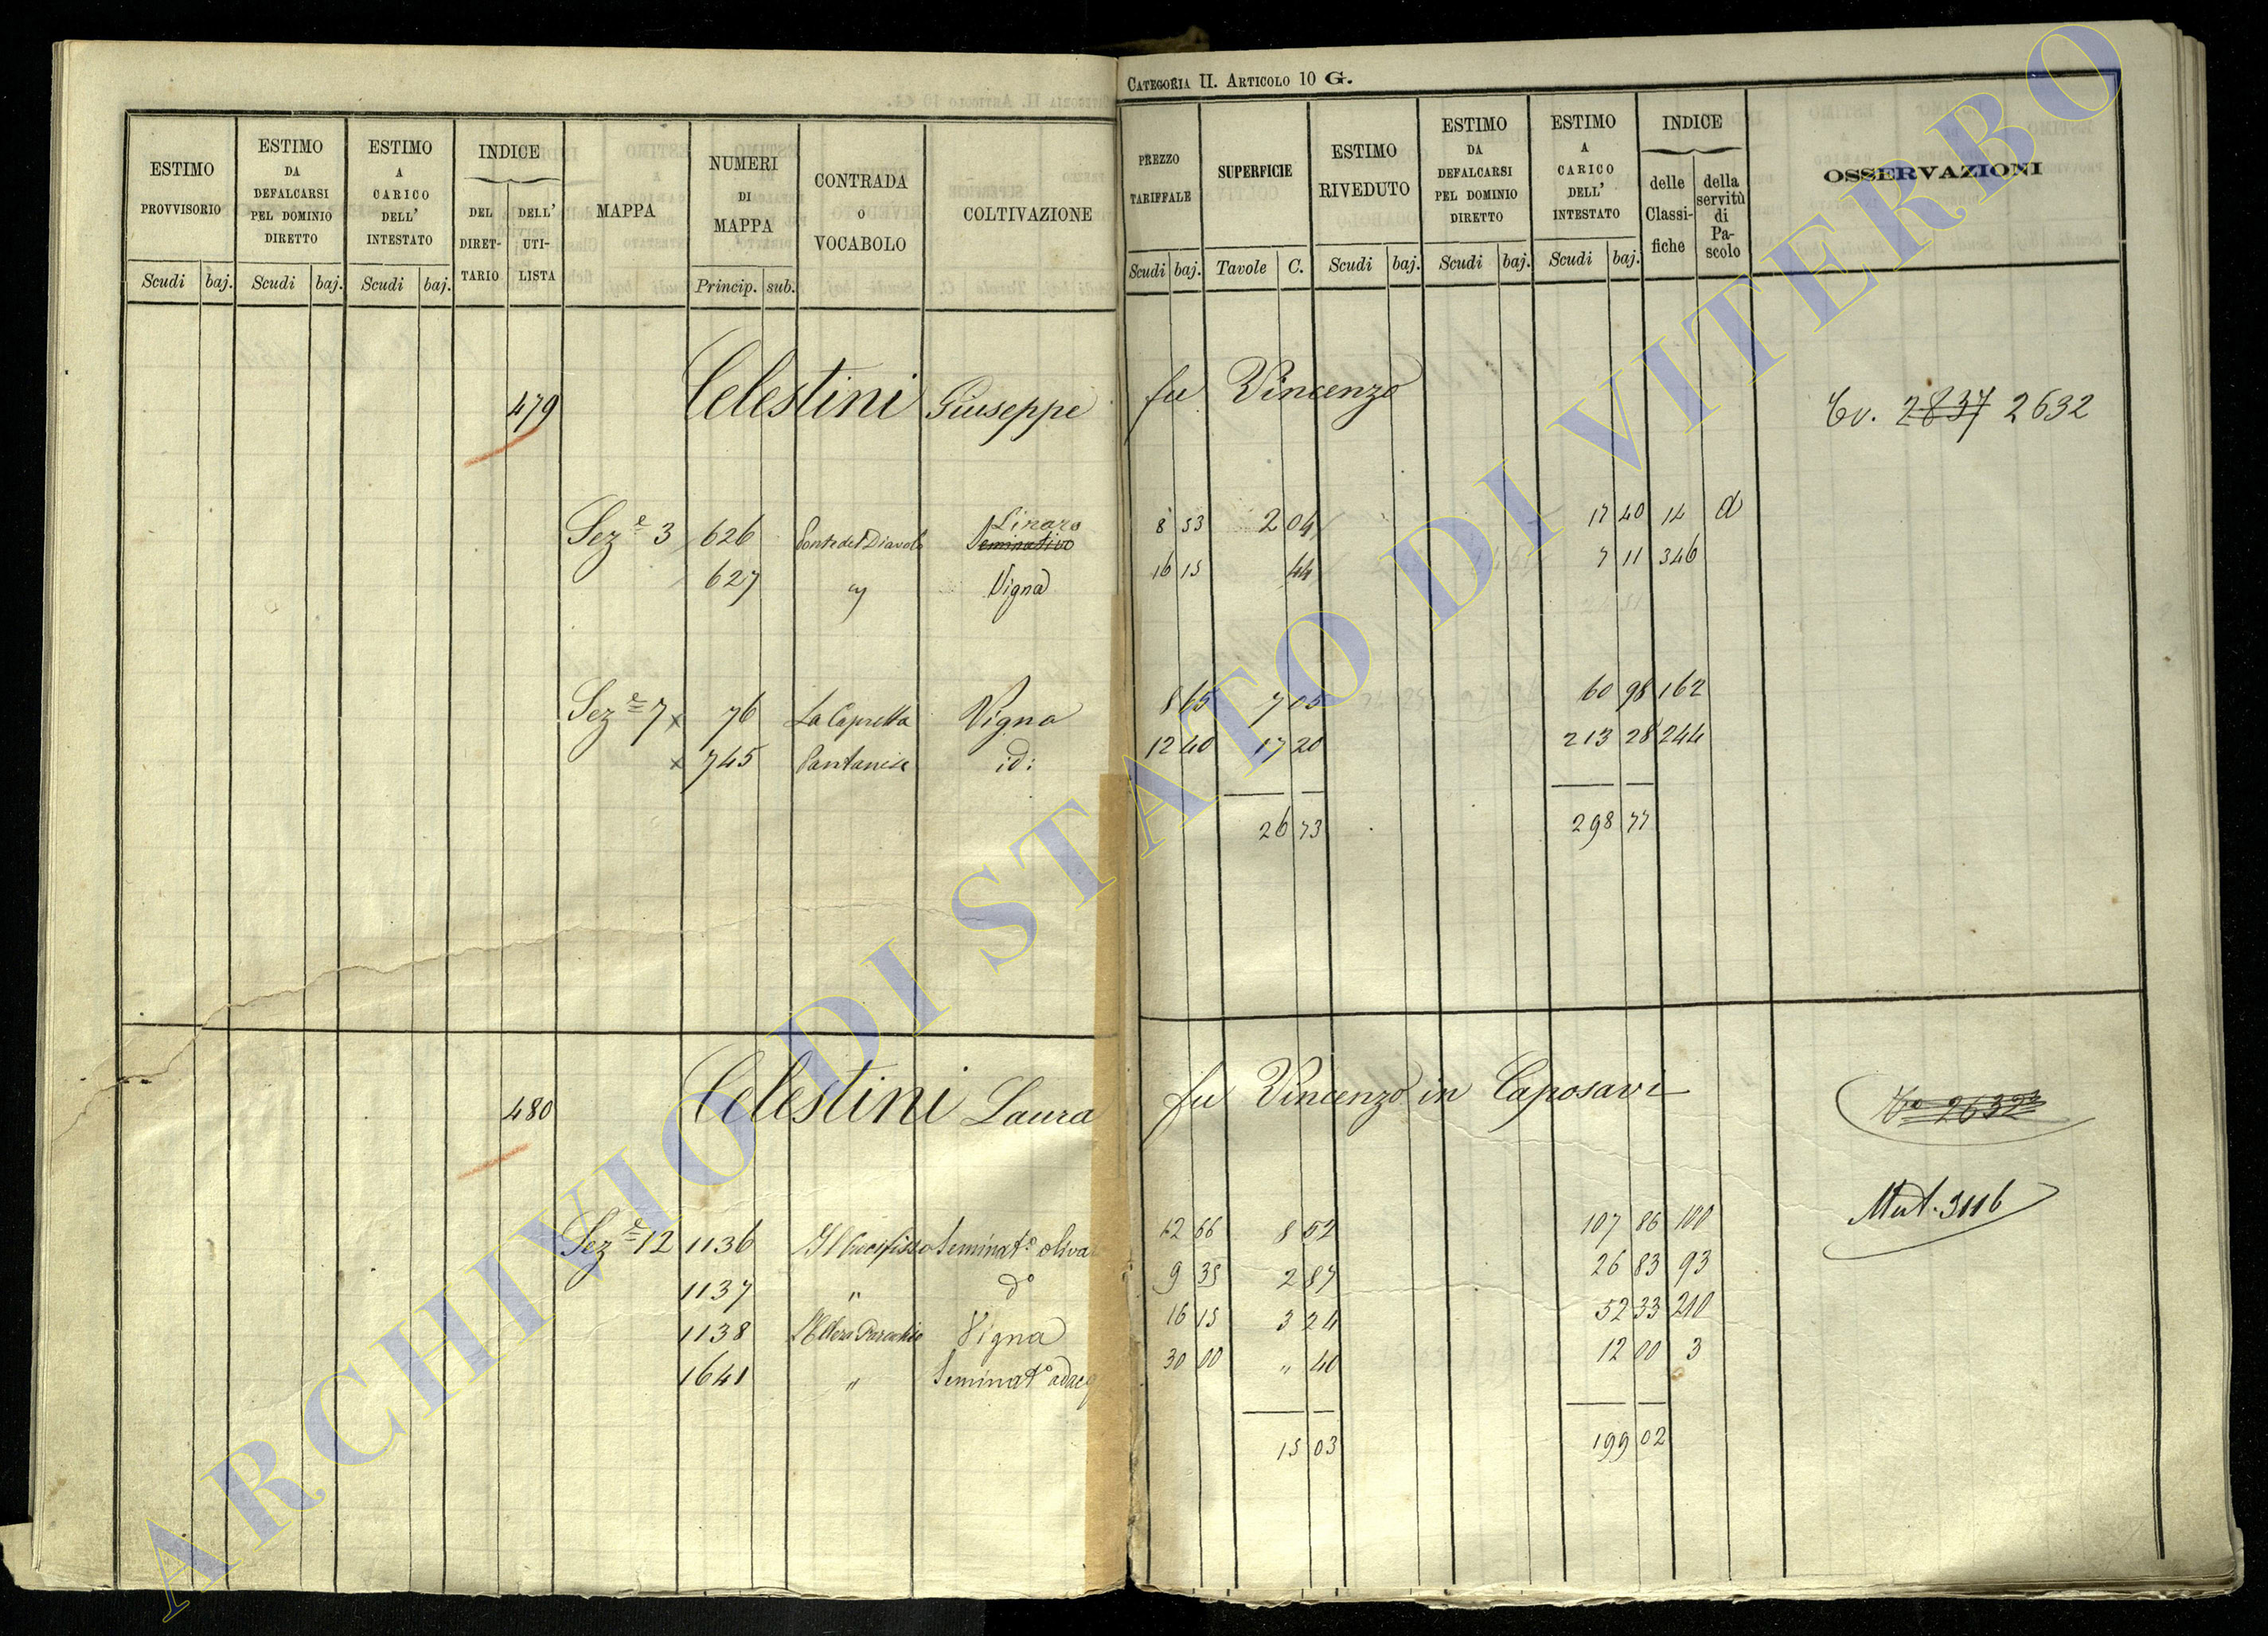 CATEGORIA II. ARTICOLO 10 G.
ESTIMO PROVVISORIO
ESTIMO DA DEFALCARSI PEL DOMINIO DIRETTO
ESTIMO A CARICO DELL' INTESTATO
INDICE
DEL DIRET-TARIO
DELL' UTI-LISTA
MAPPA
NUMERI DI MAPPA
CONTRADA O VOCABOLO
COLTIVAZIONE
PREZZO TARIFFALE
SUPERFICIE
ESTIMO RIVEDUTO
ESTIMO DA DEFALCARSI PEL DOMINIO DIRETTO
ESTIMO A CARICO DELL' INTESTATO
INDICE
delle Classi-fiche
della servitù di Pa-scolo
OSSERVAZIONI
Scudi baj. Scudi baj. Scudi baj. Princip. sub. Scudi baj. Tavole C. Scudi baj. Scudi baj. Scudi baj.
479 Celestini Giuseppe fu Vincenzo 2837 2632
Sez.e 3 626 Ponte del Diavolo Seminativo 8 53 2 04 17 40 14 d
627 " Vigna 16 15 44 7 11 346
Sez.e 7 x 76 La Capretta Vigna 8 65 7 05 60 98 162
x 745 Pantanese id: 12 40 17 20 213 28 244
26 73 298 77
480 Celestini Laura fu Vincenzo in Caposavi
Mut. 3116
Sez.e 12 1136 Il Crocifisso Seminat.o oliva 12 66 8 52 107 86 100
1137 " d.o 9 35 2 87 26 83 93
1138 Vigna 16 15 3 24 52 33 210
1641 " Seminat.o adacq 30 00 " 40 12 00 3
15 03 199 02
ARCHIVIO DI STATO DI VITERBO